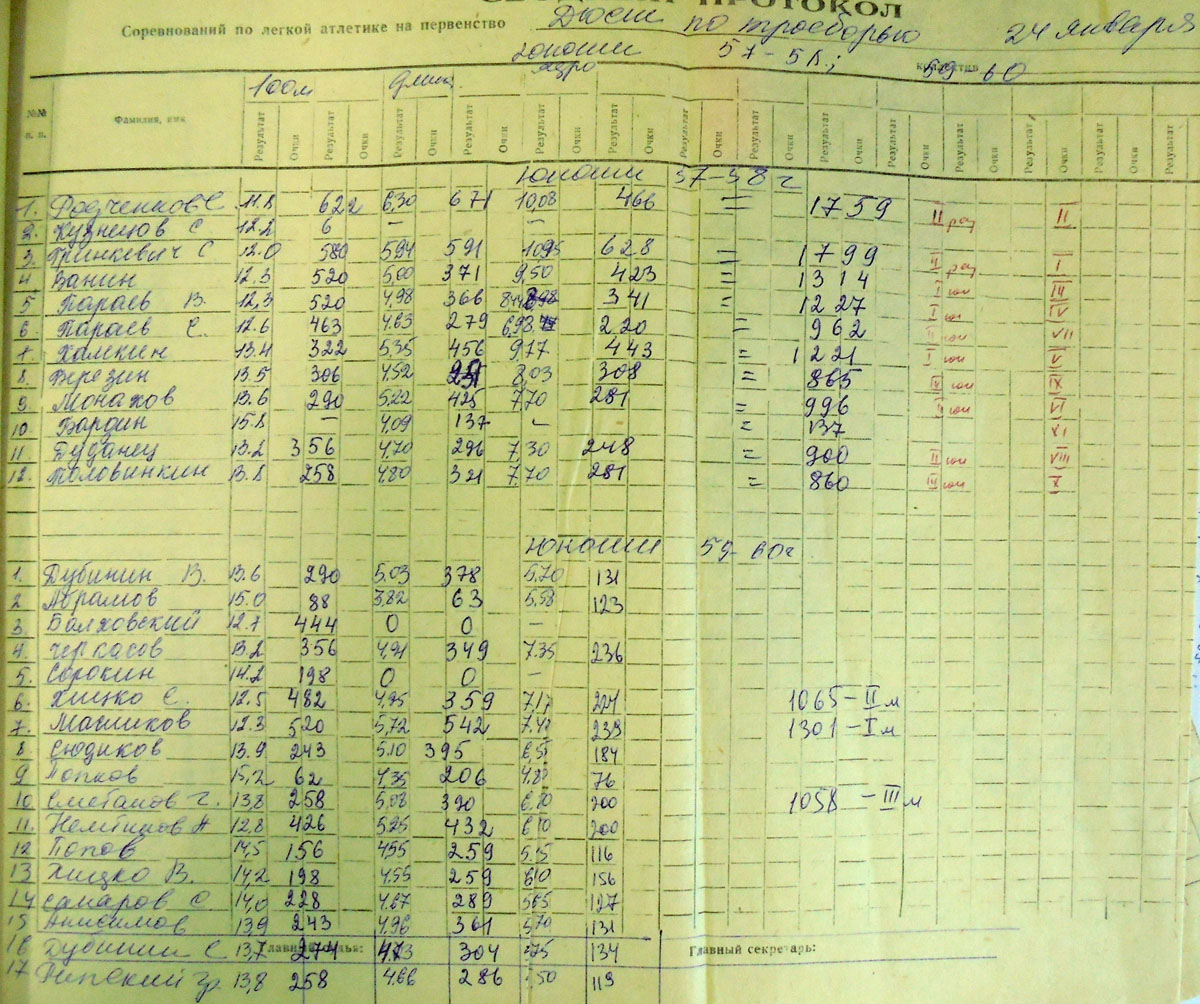 ПРОТОКОЛ
Соревнований по легкой атлетике на первенство Дюсш по троеборью 24 января
юноши 57-58; 59-60
100м длина ядро
№№ п. п. Фамилия, имя Результат Очки Результат Очки Результат Очки Результат Очки Результат Очки Результат Очки Результат Очки Результат Очки Результат Очки Результат Очки Результат Очки Результат Очки Результат
Юноши 57-58 г
1. Родченков С 11.8 622 6,30 671 10,08 466 = 1759 II раз II
2. Кузнецов С 12.2 6 — —
3. Гринкевич С 12.0 580 5,94 591 628 = 1799 II раз I
4 Ванин 12.3 520 5,00 371 9,50 423 = 1314 I юн III
5 Параев В. 12,3 520 4,98 366 341 = 1227 I юн IV
6 Параев С. 12.6 463 4,63 279 220 = 962 II юн VII
7. Хамкин 13.4 322 5,35 456 9,77 443 = 1221 I юн V
8. Березин 13.5 306 4,52 251 8,03 308 = 865 IX
9 Монахов 13.6 290 5,22 425 7,70 281 = 996 II юн VI
10. Бардин 15.8 — 4,09 137 — = 137 XI
11 Буданец 13.2 356 4,70 296 7,30 248 = 900 II юн VIII
12. Половинкин 13.8 258 4,80 321 7,70 281 = 860 III юн X
Юноши 59-60г
1. Дубинин В. 13.6 290 5,03 378 5,70 131
2 Абрамов 15.0 88 3,82 63 5,58 123
3. Балховский 12.7 444 0 0 —
4. Черкасов 13.2 356 4,91 349 7.35 236
5. Сорокин 14.2 198 0 0 —
6. Хицко С. 12.5 482 4,95 359 7,17 224 1065 — II м
7. Машиков 12.3 520 5,72 542 7.40 239 1301 — I м
8 Сюдиков 13.9 243 5.10 395 6,51 184
9 Попков 15,2 62 4,35 206 4,80 76
10 Сметанов Г. 13,8 258 5,08 390 200 1058 — III м
11. 12,8 426 5,25 432 200
12 Попов 14,5 156 4,55 259 5,45 116
13 Хицко В. 14,2 198 4,55 259 6,10 156
14 Самаров С 14,0 228 4,67 289 5,65 127
15 Анисимов 13,9 243 4,96 361 5,70 131
16 Дубинин С 13,7 274 4,73 304 134
Главный судья: Главный секретарь:
17 13,8 258 4,66 286 119